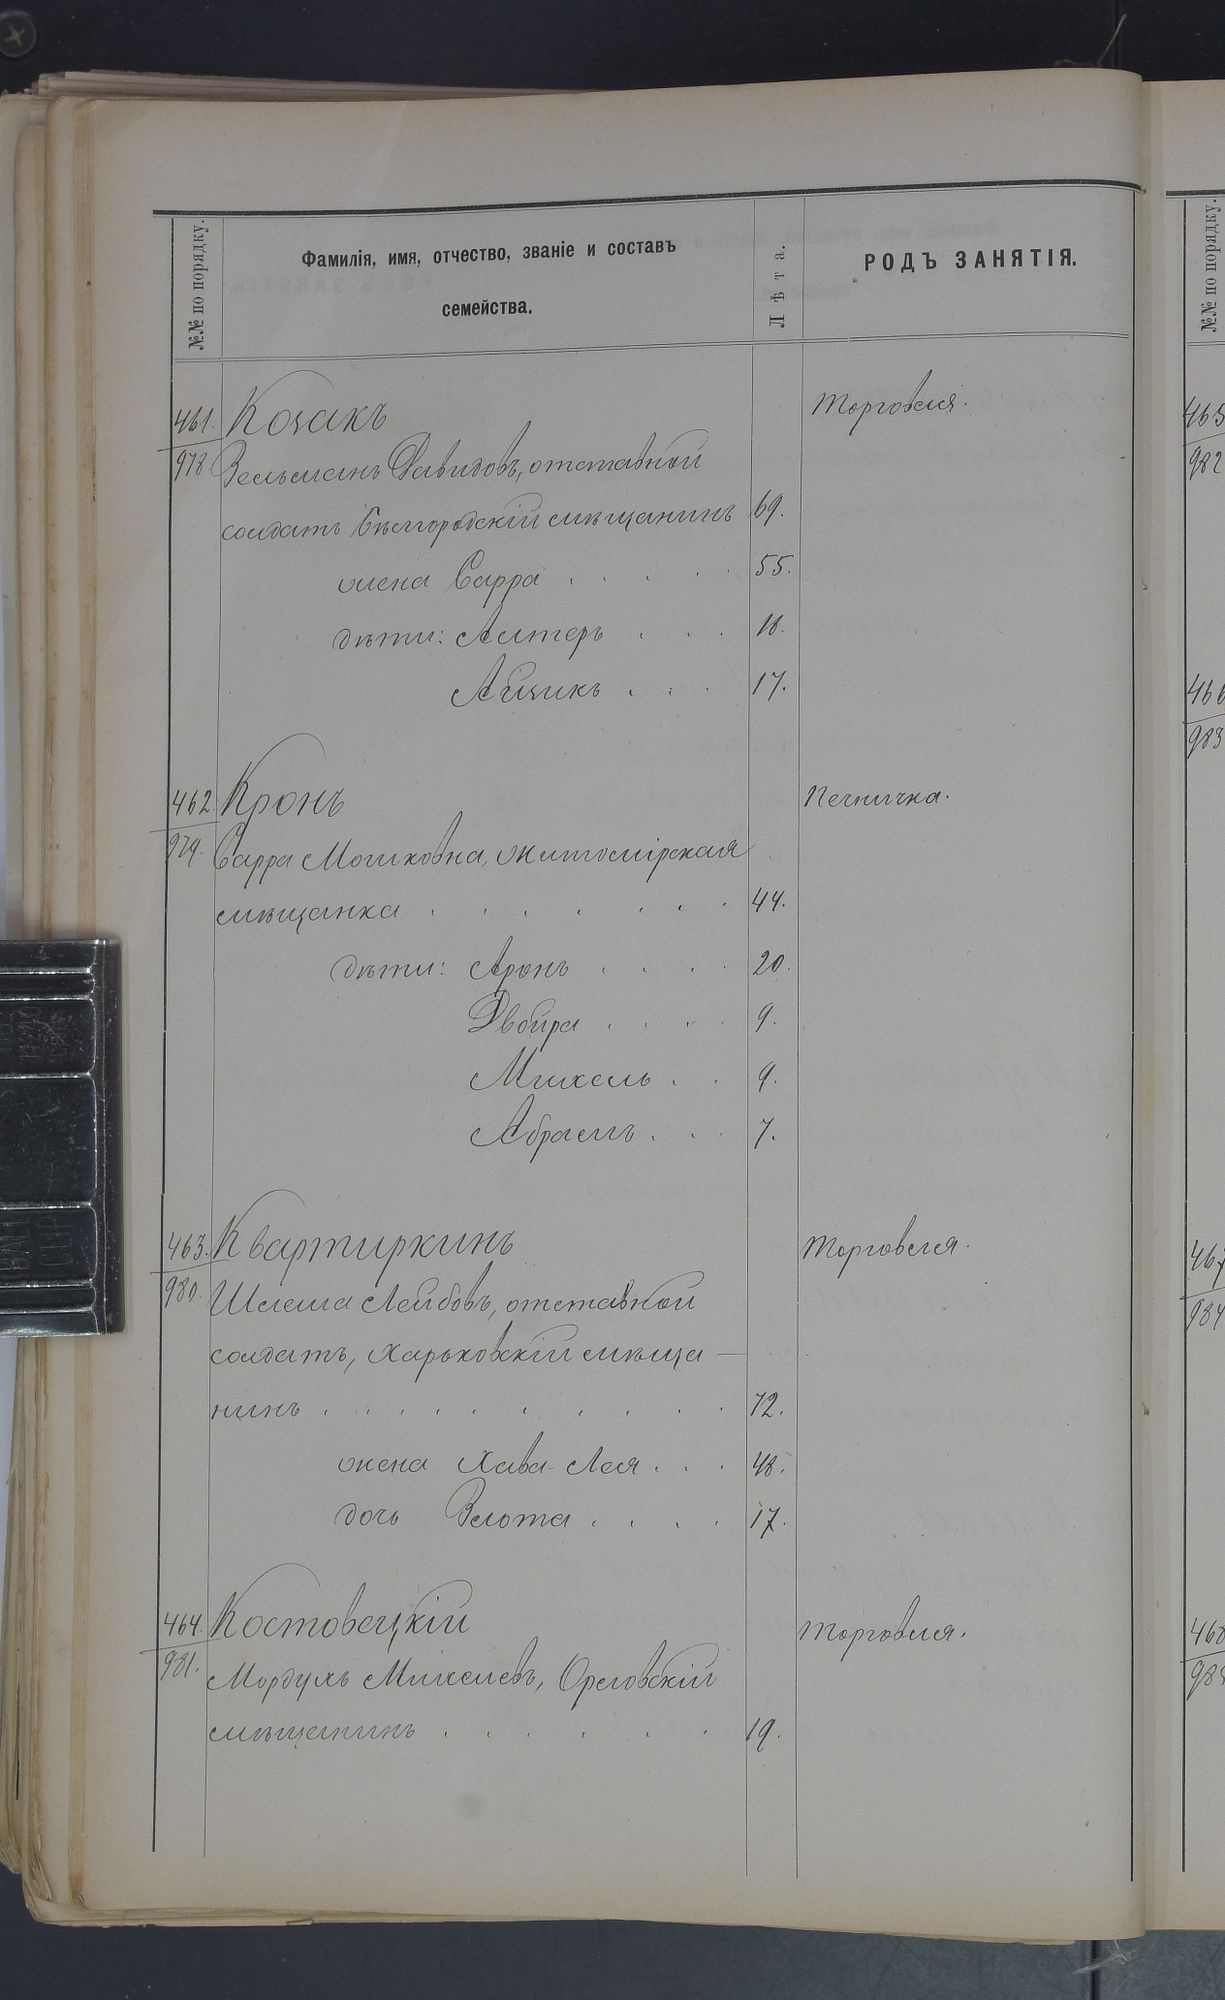 №№ по порядку.
Фамилія, имя, отчество, званіе и составъ
семейства.
Лѣта.
РОДЪ ЗАНЯТІЯ.
461. Козакъ Торговля.
978 Зельманъ Давидовъ, отставной
солдатъ Бѣлгородскій мѣщанинъ 69.
жена Сарра . . . . . 55.
дѣти: Алтеръ . . . 18.
Айзикъ . . . 17.
462. Кронъ Печничка.
979. Сарра Мошковна, житомірская
мѣщанка . . . . . . . 44.
дѣти: Аронъ . . . . 20.
Двойра . . . . 9.
Михель . . 9.
Абрамъ . . . 7.
463. Квартиркинъ Торговля.
980. Шлема Лейбовъ, отставной
солдатъ, Харьковскій мѣща—
нинъ . . . . . . . . . 72.
жена Хава-Лея . . . 48.
дочь Злота . . . . 17.
464. Костовецкій Торговля.
981. Мордухъ Михелевъ, Орловскій
мѣщанинъ . . . . . . 19.
№№ по порядку.
465
982
466
983
467
984
468
985